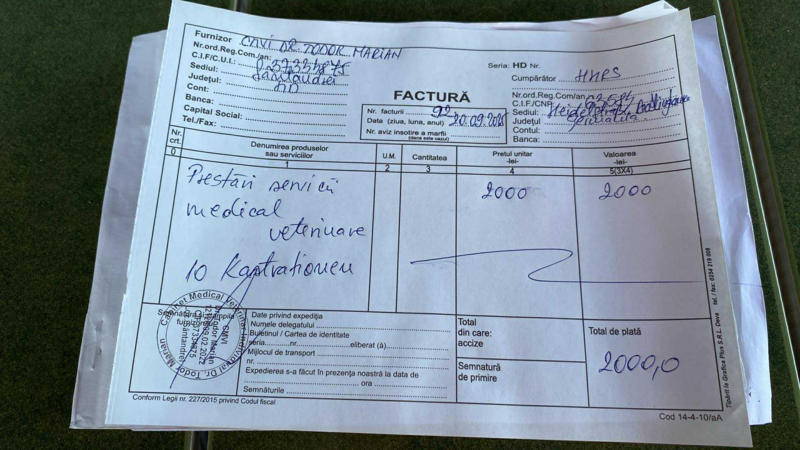 Furnizor CMVI DR TODOR MARIAN
Nr.ord.Reg.Com./an:
C.I.F/C.U.I.:
Sediul:
Județul: HD
Cont:
Banca:
Capital Social:
Tel./Fax:
Seria: HD Nr.
Cumpărător HHPS
Nr.ord.Reg.Com./an
C.I.F/CNP
Sediul:
Județul
Contul:
Banca:
FACTURĂ
Nr. facturii 92
Data (ziua, luna, anul) 20.09.2025
Nr. aviz insotire a marfii
(daca este cazul)
Nr. crt. Denumirea produselor sau serviciilor U.M. Cantitatea Pretul unitar -lei- Valoarea -lei-
0 1 2 3 4 5(3X4)
Prestări servicii 2000 2000
medical
veterinare
10 Kastrationen
Semnătura și ștampila furnizorului
Cabinet Medical Veterinar Individual Dr. Todor Marian
CMVI
Date privind expediţia
Numele delegatului
Buletinul / Cartea de identitate
seria nr. eliberat (ă)
Mijlocul de transport
nr.
Expedierea s-a făcut în prezenţa noastră la data de
ora
Semnăturile
Total
din care:
accize
Semnătură
de primire
Total de plată
2000,0
Conform Legii nr. 227/2015 privind Codul fiscal
Cod 14-4-10/aA
Tipărit la Grafica Plus S.R.L. Deva tel./ fax: 0254 219 009